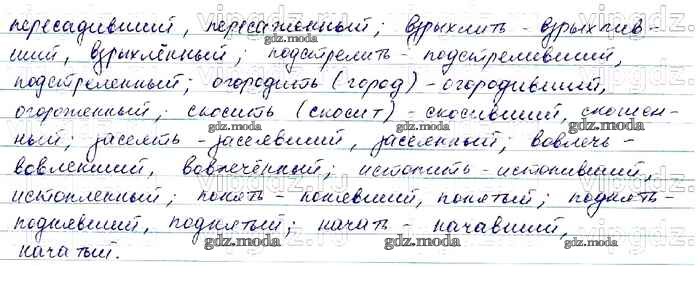 пересадивший, пересаженный; взрыхлить - взрыхлив-
ший, взрыхлённый; подстрелить - подстреливший,
подстреленный; огородить (город) - огородивший,
огороженный; скосить (скосит) - скосивший, скошен-
ный; заселить - заселявший, заселенный; вовлечь -
вовлекший, вовлечённый; истопить - истопивший,
истопленный; понять - понявший, понятый; поднять -
поднявший, поднятый; начать - начавший,
начатый.